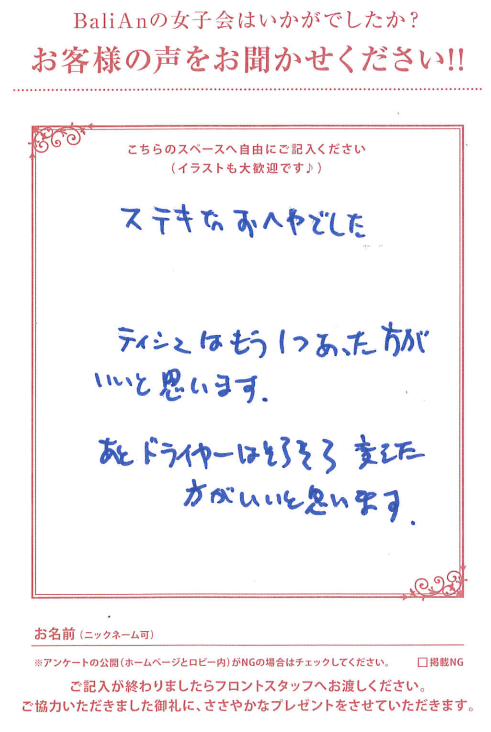 BaliAnの女子会はいかがでしたか？
お客様の声をお聞かせください!!
こちらのスペースへ自由にご記入ください
（イラストも大歓迎です♪）
ステキなおへやでした
ティシュはもう1つあった方が
いいと思います.
あとドライヤーはそろそろ変えた
方がいいと思います.
お名前（ニックネーム可）
※アンケートの公開（ホームページとロビー内）がNGの場合はチェックしてください。 □掲載NG
ご記入が終わりましたらフロントスタッフへお渡しください。
ご協力いただきました御礼に、ささやかなプレゼントをさせていただきます。